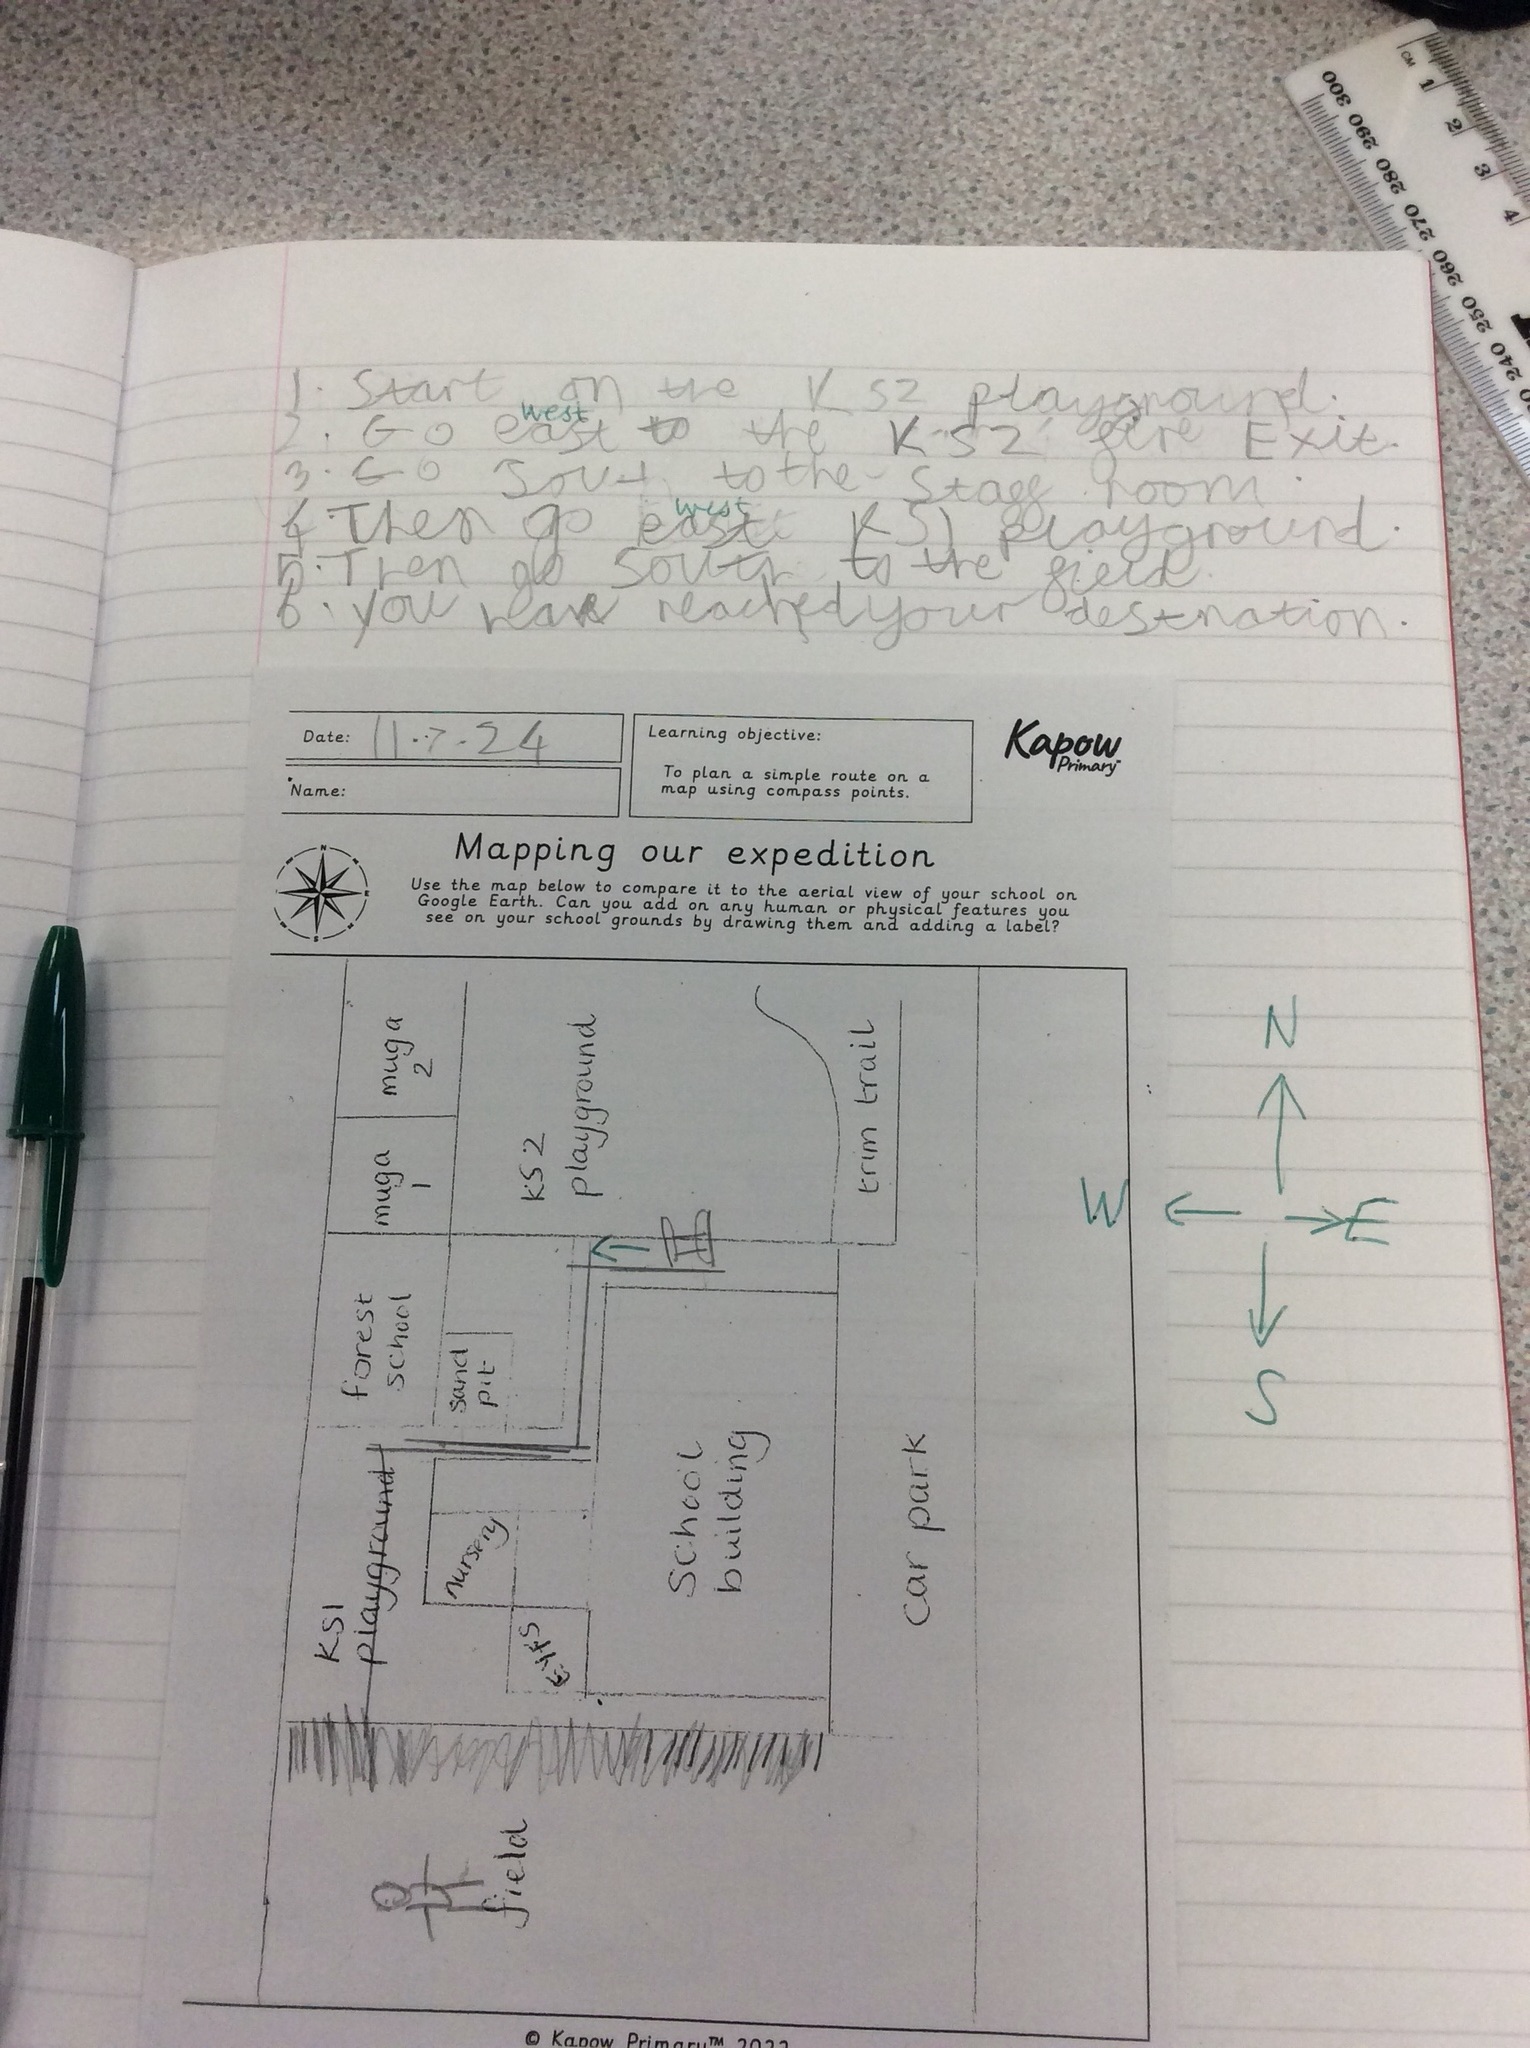 1. Start on the KS2 playground.
west
2. Go east to the KS2 fire Exit.
3. Go South to the Stagg room.
west
4. Then go east KS1 playground.
5. Then go South to the field.
6. you have reached your destnation.
Date: 11.7.24
Name:
Learning objective:
To plan a simple route on a
map using compass points.
Kapow
Primary
Mapping our expedition
Use the map below to compare it to the aerial view of your school on
Google Earth. Can you add on any human or physical features you
see on your school grounds by drawing them and adding a label?
muga
2
muga
1
KS2
playground
trim trail
forest
school
sand
pit
KS1
playground
nursery
EYFS
School
building
Car park
field
N
W
E
S
© Kapow Primary™ 2022
CM 1 2 3 4
300 290 280 270 260 250 240